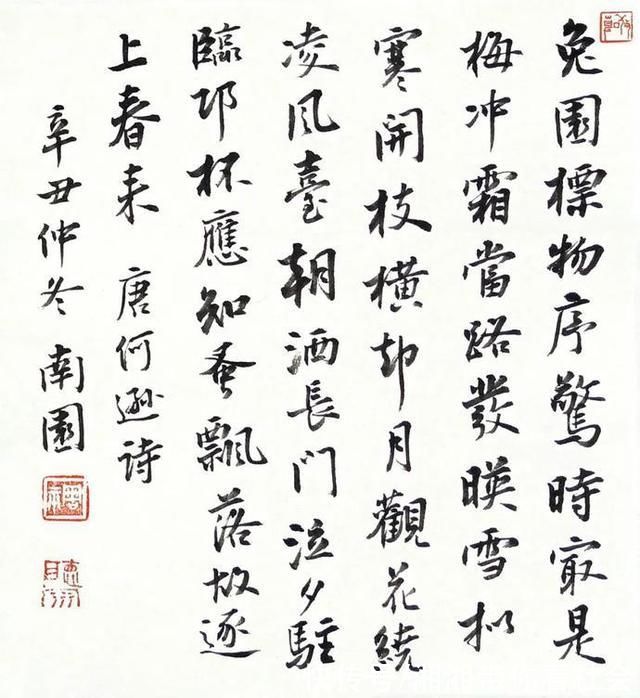 兔園標物序驚時㝡是
梅冲霜當路發暎雪拟
寒開枝橫却月觀花繞
凌風臺朝洒長門泣夕駐
臨邛杯應知蚤飄落故逐
上春来 唐何遜詩
辛丑仲冬 南園